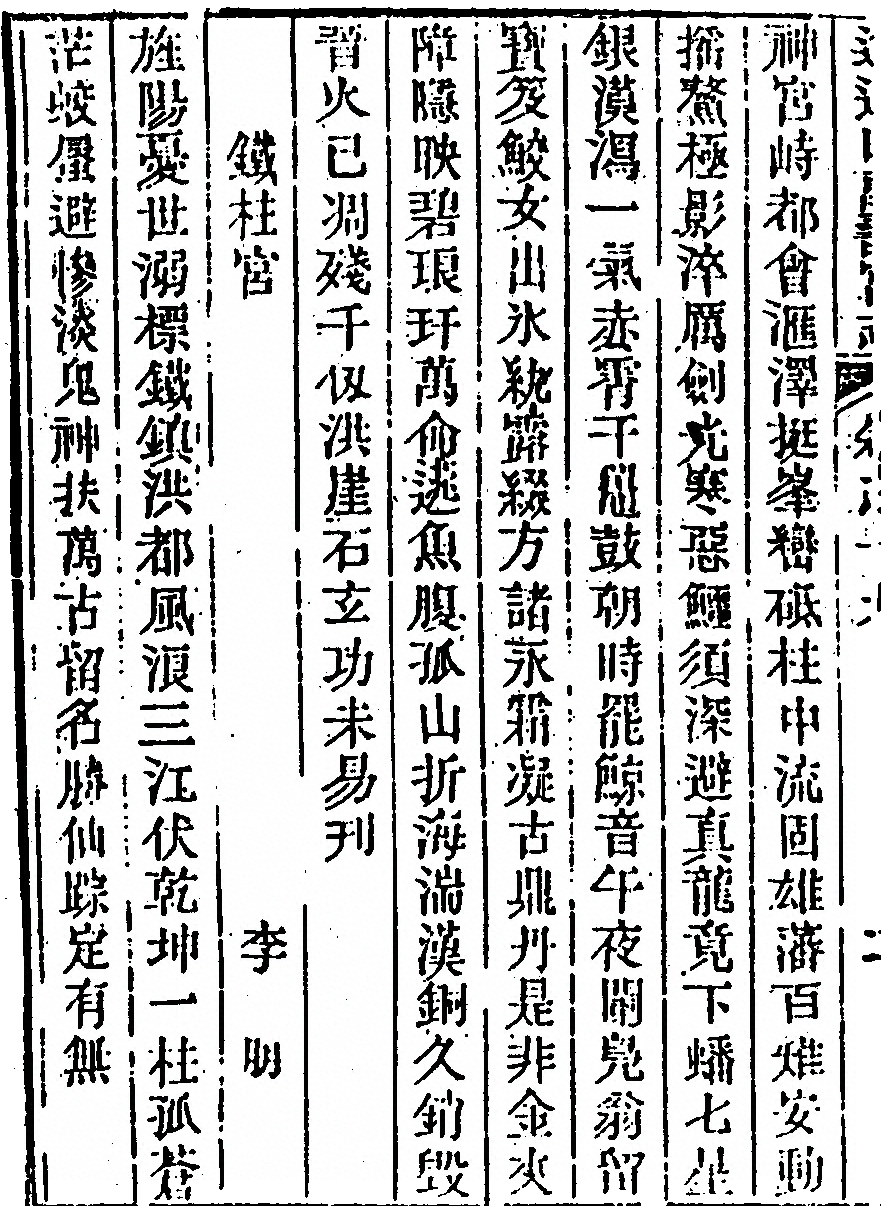 神宮峙都會滙澤挺峯巒砥柱中流固雄藩百雉安動
摇鰲極影淬厲劍光寒惡鱷須深避真龍竟下蟠七星
銀漢瀉一氣赤霄干鼉鼓朝時罷鯨音午夜闌翁留
寶笈鮫女出氷紈綴方諸永霜凝古鼎丹是非金夾
障隱映碧琅玕萬命逃魚腹孤山折海湍漢銅久銷毀
晉火已凋殘千仭洪崖石玄功未易刊
鐵柱宮 李明
旌陽憂世溺標鐵鎮洪都風浪三江伏乾坤一柱孤蒼
茫蛟蜃避慘淡鬼神扶萬古留名勝仙踪定有無